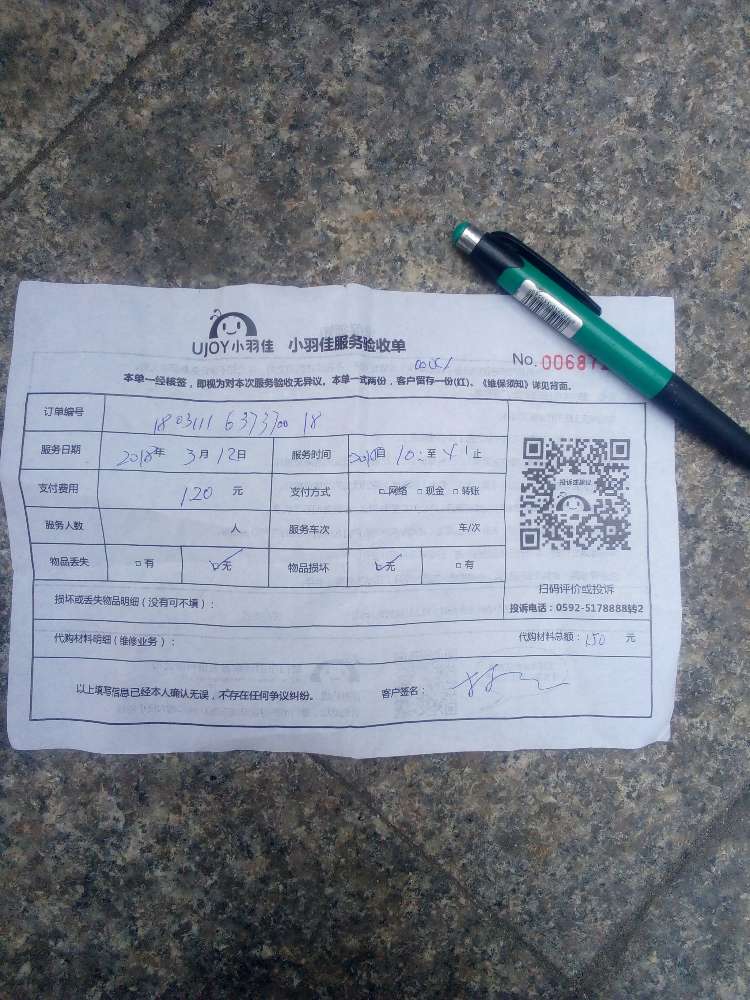 UJOY小羽佳 小羽佳服务验收单
No. 00687
本单一经核签，即视为对本次服务验收无异议。本单一式两份，客户留存一份(红)。《维保须知》详见背面。
订单编号 18031116373700 18
服务日期 2018年 3月 12日 服务时间 10:至 止
支付费用 120 元 支付方式 □网络 □现金 □转账
服务人数 人 服务车次 车/次
物品丢失 □有 □无 物品损坏 □无 □有
投诉或建议
扫码评价或投诉
投诉电话：0592-5178888转2
损坏或丢失物品明细（没有可不填）：
代购材料明细（维修业务）： 代购材料总额：150 元
以上填写信息已经本人确认无误，不存在任何争议纠纷。 客户签名：